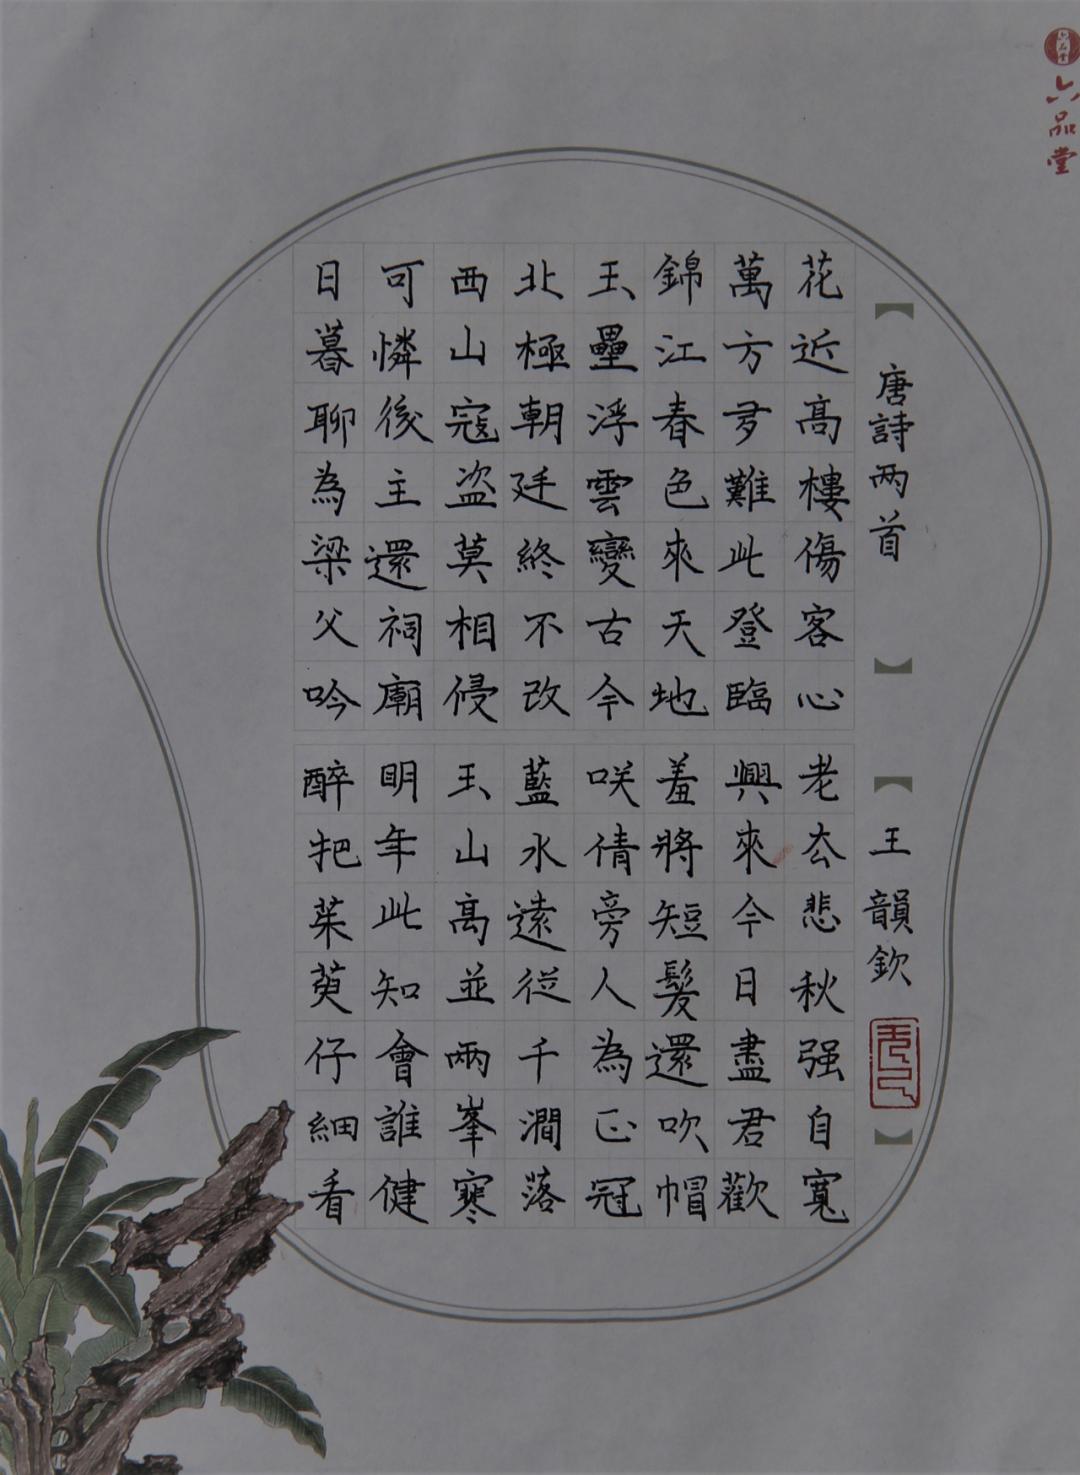 六品堂
六品堂
【唐詩两首】
【王韻欽】
花近高樓傷客心
萬方多難此登臨
錦江春色來天地
玉壘浮雲變古今
北極朝廷終不改
西山寇盗莫相侵
可憐後主還祠廟
日暮聊為梁父吟
老去悲秋强自寬
興來今日盡君歡
羞將短髮還吹帽
咲倩旁人為正冠
藍水遠從千澗落
玉山高並兩峯寒
明年此知會誰健
醉把茱萸仔細看